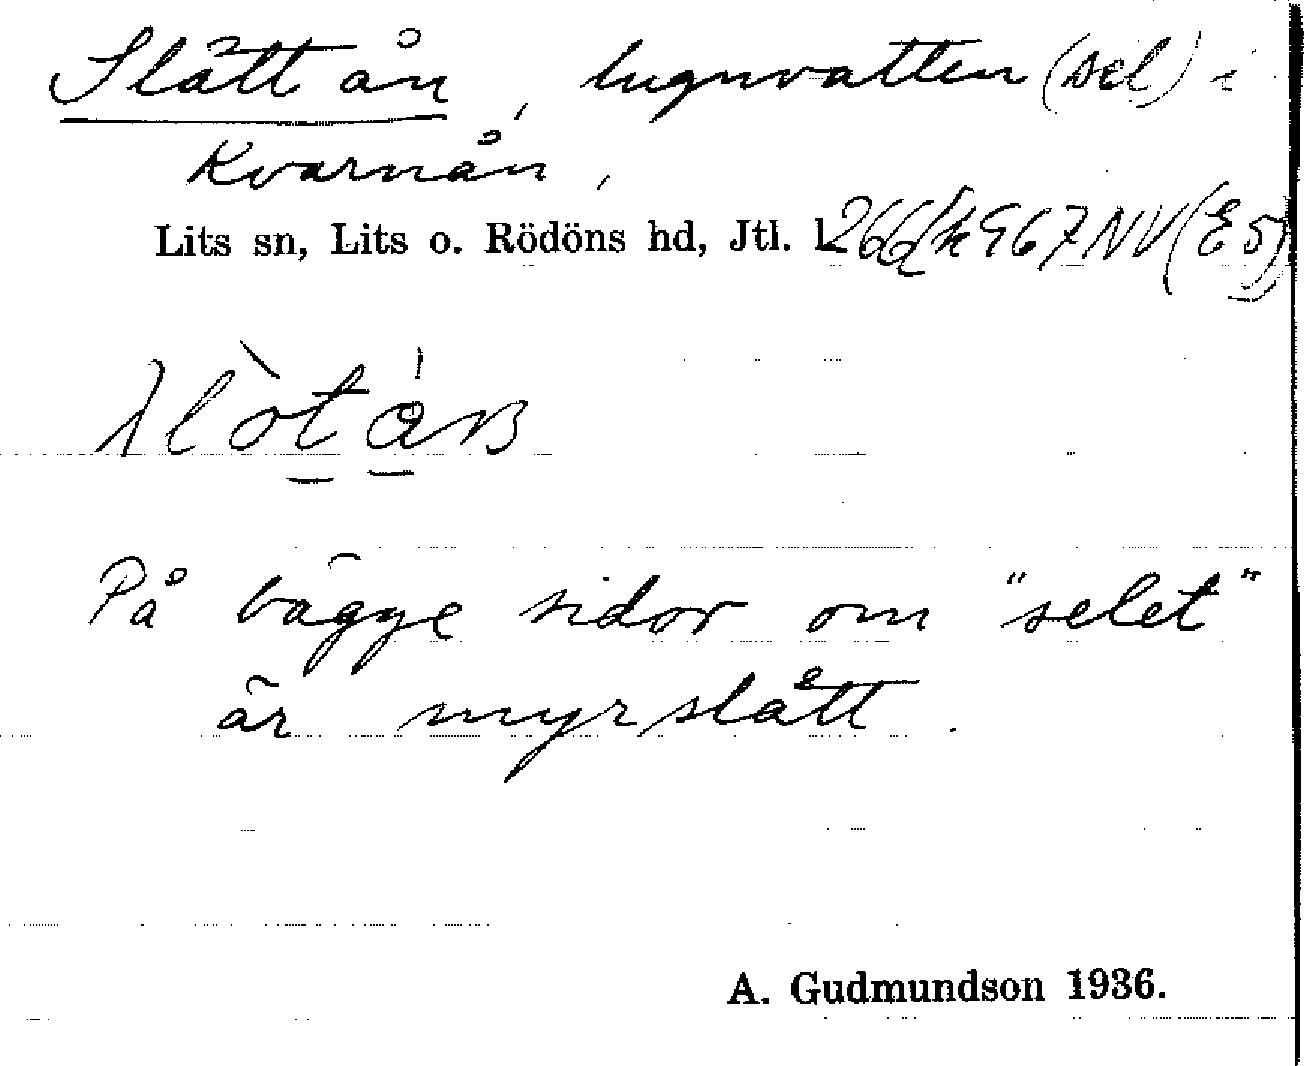 Slåttån, lugnvatten (sel) i
Kvarnån,
Lits sn, Lits o. Rödöns hd, Jtl. l.
På bägge sidor om "selet"
är myrslått.
A. Gudmundson 1936.